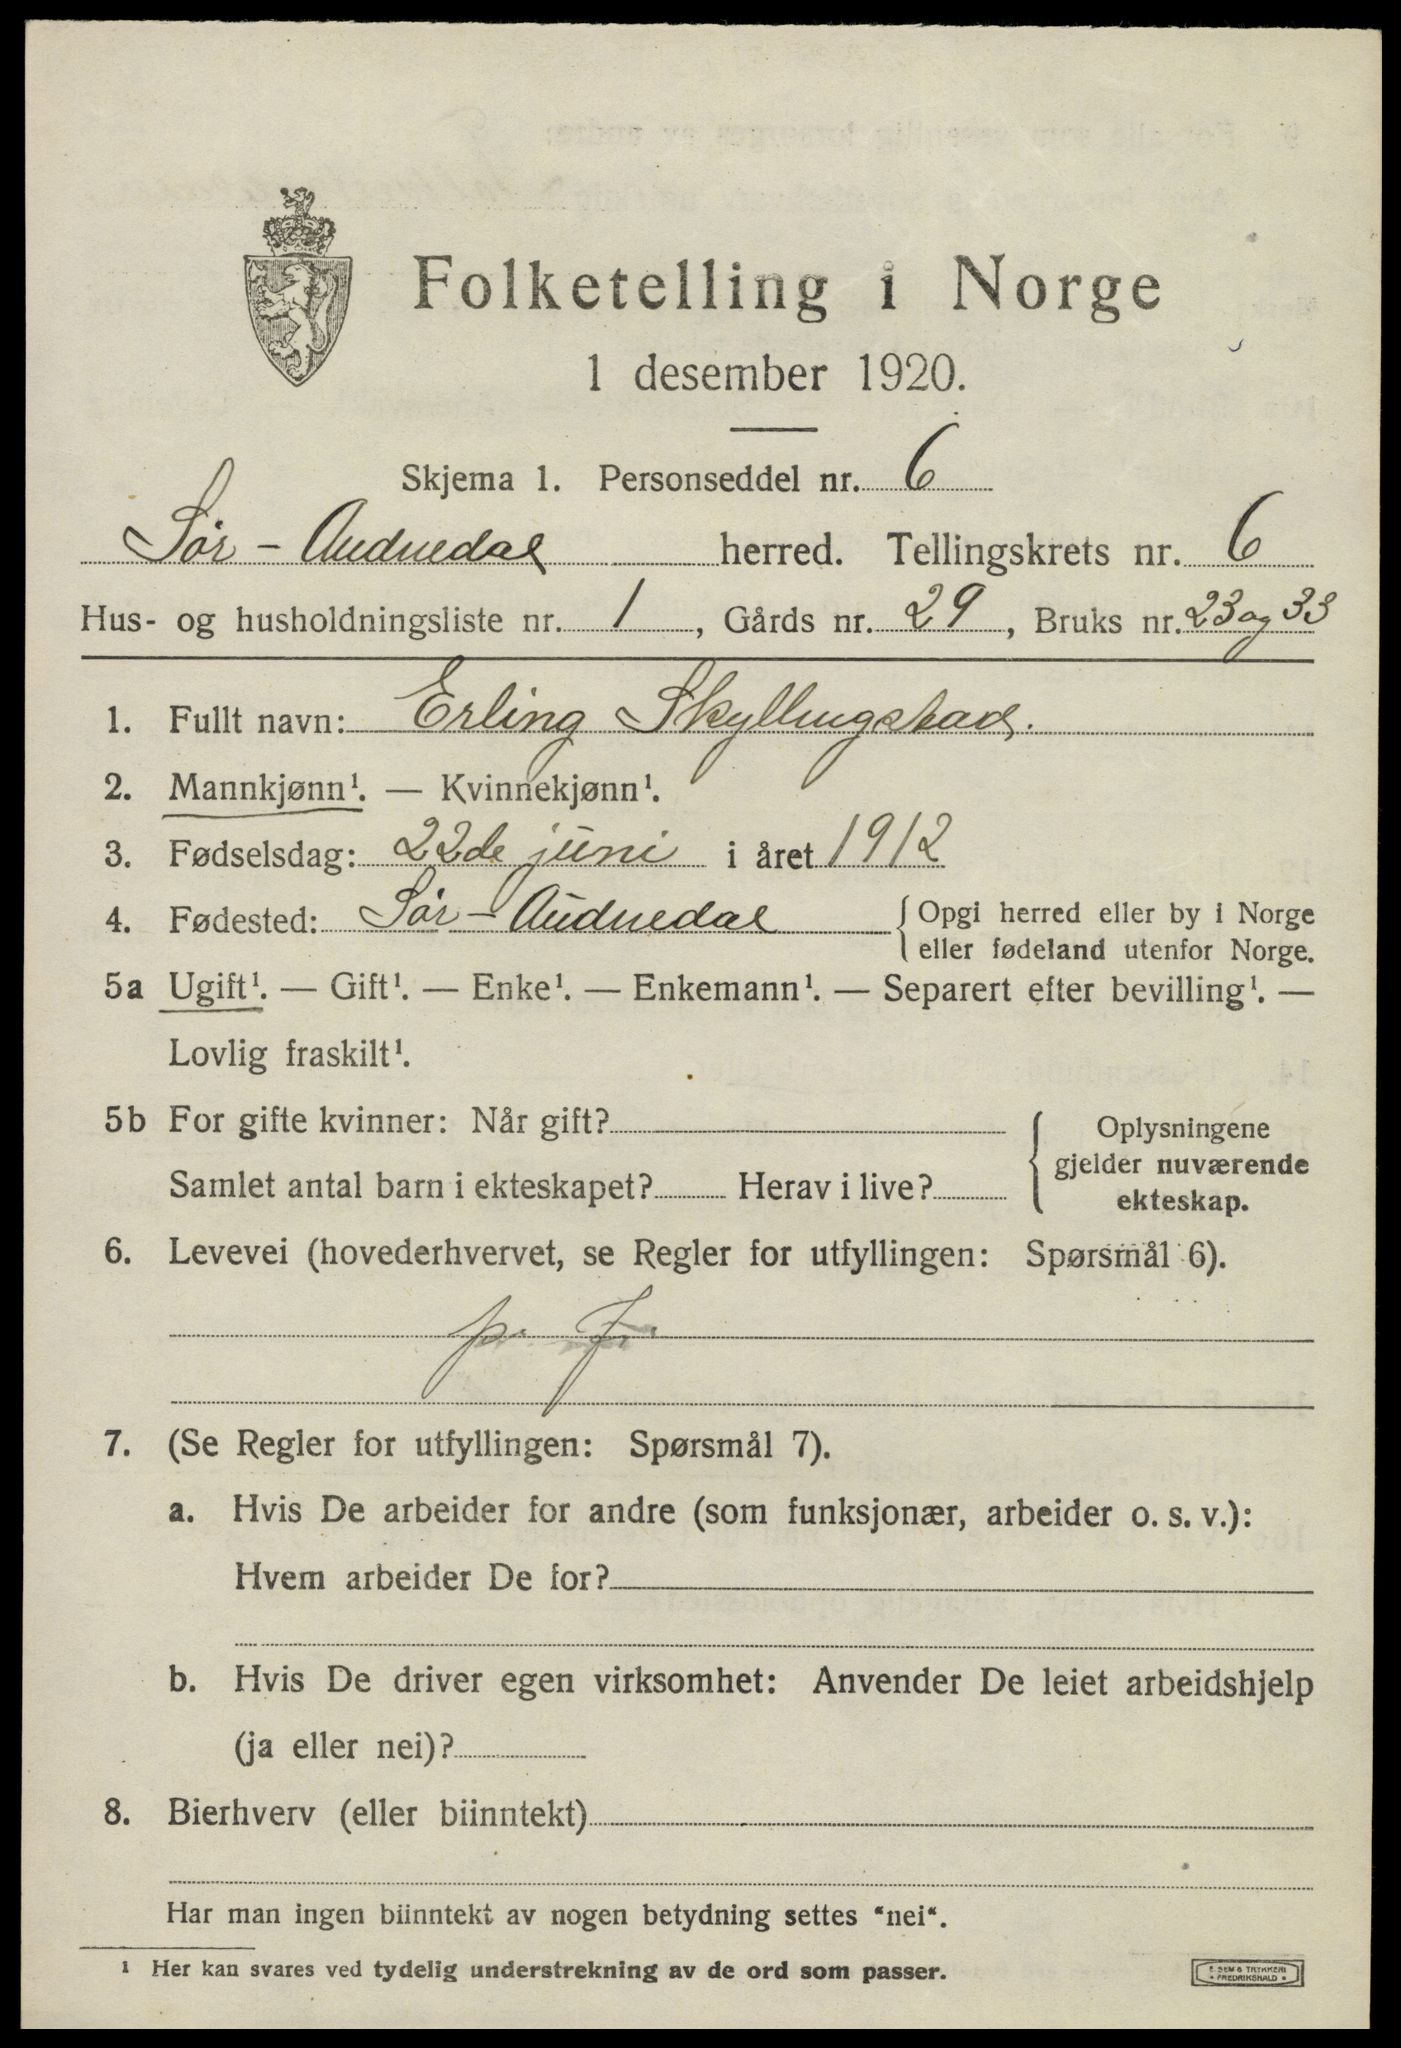 Folketelling i Norge
1 desember 1920.
Skjema 1. Personseddel nr. 6
Sør-Audnedal herred. Tellingskrets nr. 6
Hus- og husholdningsliste nr. 1, Gårds nr. 29, Bruks nr. 23 og 33
1. Fullt navn: Erling Skyllingstad.
2. Mannkjønn¹. — Kvinnekjønn¹.
3. Fødselsdag: 22de juni i året 1912
4. Fødested: Sør-Audnedal { Opgi herred eller by i Norge
eller fødeland utenfor Norge.
5a Ugift¹. — Gift¹. — Enke¹. — Enkemann¹. — Separert efter bevilling¹. —
Lovlig fraskilt¹.
5b For gifte kvinner: Når gift?
Samlet antal barn i ekteskapet? Herav i live?
{ Oplysningene
gjelder nuværende
ekteskap.
6. Levevei (hovederhvervet, se Regler for utfyllingen: Spørsmål 6).
p. f.
7. (Se Regler for utfyllingen: Spørsmål 7).
a. Hvis De arbeider for andre (som funksjonær, arbeider o. s. v.):
Hvem arbeider De for?
b. Hvis De driver egen virksomhet: Anvender De leiet arbeidshjelp
(ja eller nei)?
8. Bierhverv (eller biinntekt)
Har man ingen biinntekt av nogen betydning settes "nei".
¹ Her kan svares ved tydelig understrekning av de ord som passer.
E. SEM & TRYKKERI
FREDRIKSHALD